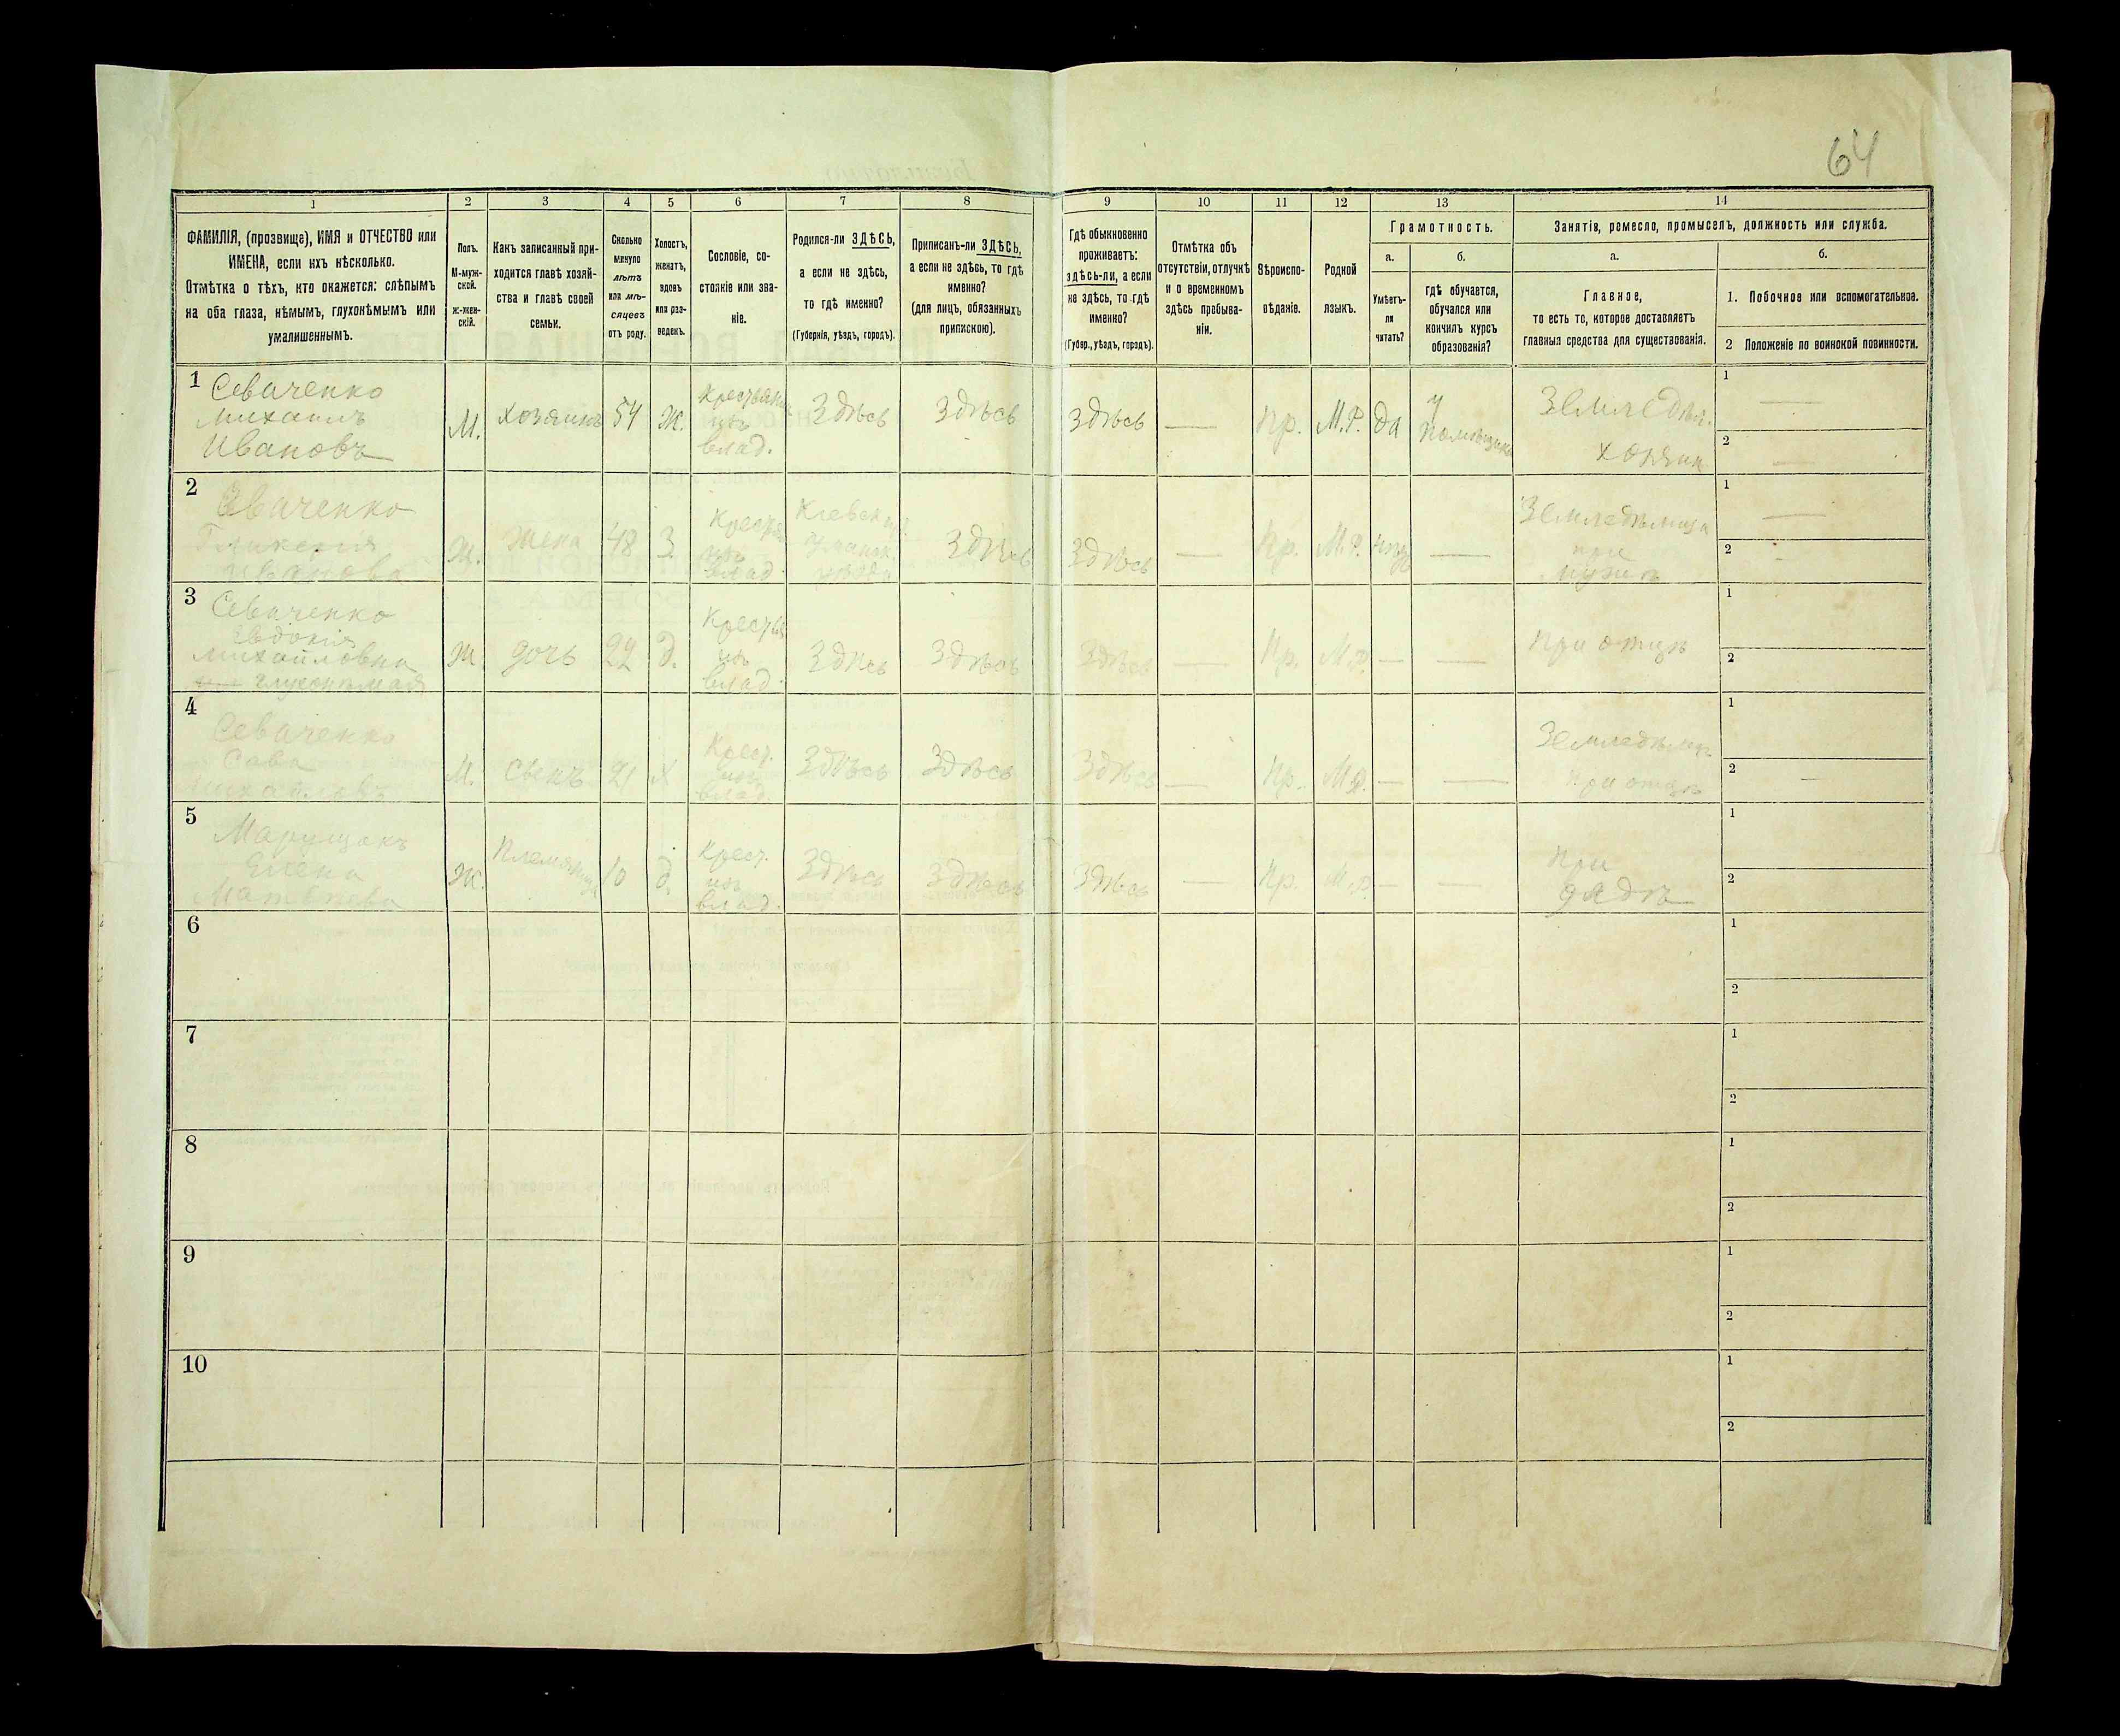 64
1 2 3 4 5 6 7 8 9 10 11 12 13 14
ФАМИЛІЯ, (прозвище), ИМЯ и ОТЧЕСТВО или
ИМЕНА, если ихъ нѣсколько.
Отмѣтка о тѣхъ, кто окажется: слѣпымъ
на оба глаза, нѣмымъ, глухонѣмымъ или
умалишеннымъ.
Полъ.
М-муж-
ской.
Ж-жен-
скій.
Какъ записанный при-
ходится главѣ хозяй-
ства и главѣ своей
семьи.
Сколько
минуло
лѣтъ
или мѣ-
сяцевъ
отъ роду.
Холостъ,
женатъ,
вдовъ
или раз-
веденъ.
Сословіе, со-
стояніе или зва-
ніе.
Родился-ли ЗДѢСЬ,
а если не здѣсь,
то гдѣ именно?
(Губернія, уѣздъ, городъ).
Приписанъ-ли ЗДѢСЬ,
а если не здѣсь, то гдѣ
именно?
(для лицъ, обязанныхъ
припискою).
Гдѣ обыкновенно
проживаетъ:
здѣсь-ли, а если
не здѣсь, то гдѣ
именно?
(Губер., уѣздъ, городъ).
Отмѣтка объ
отсутствіи, отлучкѣ
и о временномъ
здѣсь пребыва-
ніи.
Вѣроиспо-
вѣданіе.
Родной
языкъ.
Грамотность.
а.
Умѣетъ-
ли
читать?
б.
гдѣ обучается,
обучался или
кончилъ курсъ
образованія?
Занятіе, ремесло, промыселъ, должность или служба.
а.
Главное,
то есть то, которое доставляетъ
главныя средства для существованія.
б.
1. Побочное или вспомогательное.
2 Положеніе по воинской повинности.
1 Севаченко
Михаилъ
Ивановъ
М.
хозяинъ
54
Ж.
изъ
влад.
Здѣсь
Здѣсь
Здѣсь
—
Пр.
М.Р.
да
у
Земледѣл.
1 —
2 —
2 Севаченко
Гликерія
Иванова
Ж.
жена
48
З.
изъ
влад.
Здѣсь
Здѣсь
—
Пр.
М.Р.
—
при
1 —
2
3 Севаченко
Евдокія
Михайловна
глухонѣмая
Ж
дочь
22
д.
изъ
влад.
Здѣсь
Здѣсь
Здѣсь
—
Пр.
М.Р.
—
—
При отцѣ
1
2
4 Севаченко
Сава
М.
сынъ
21
Х
Крест.
изъ
влад.
Здѣсь
Здѣсь
Здѣсь
—
Пр.
М.Р.
—
—
при отцѣ
1
2 —
5 Марущакъ
Елена
Ж.
Племяница
10
д.
Крест.
изъ
влад.
Здѣсь
Здѣсь
Здѣсь
—
Пр.
М.Р.
—
—
При
дядѣ
1
2
6
1
2
7
1
2
8
1
2
9
1
2
10
1
2